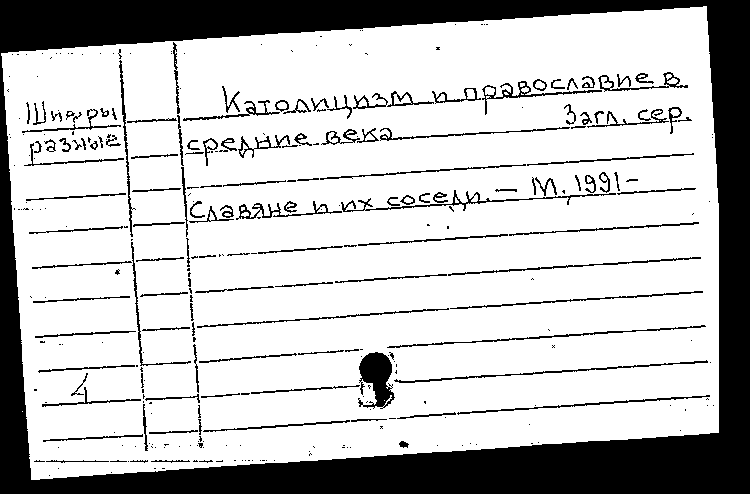 Шифры
разные
Католицизм и православие в
средние века Загл. сер.
Славяне и их соседи. — М., 1991–
4